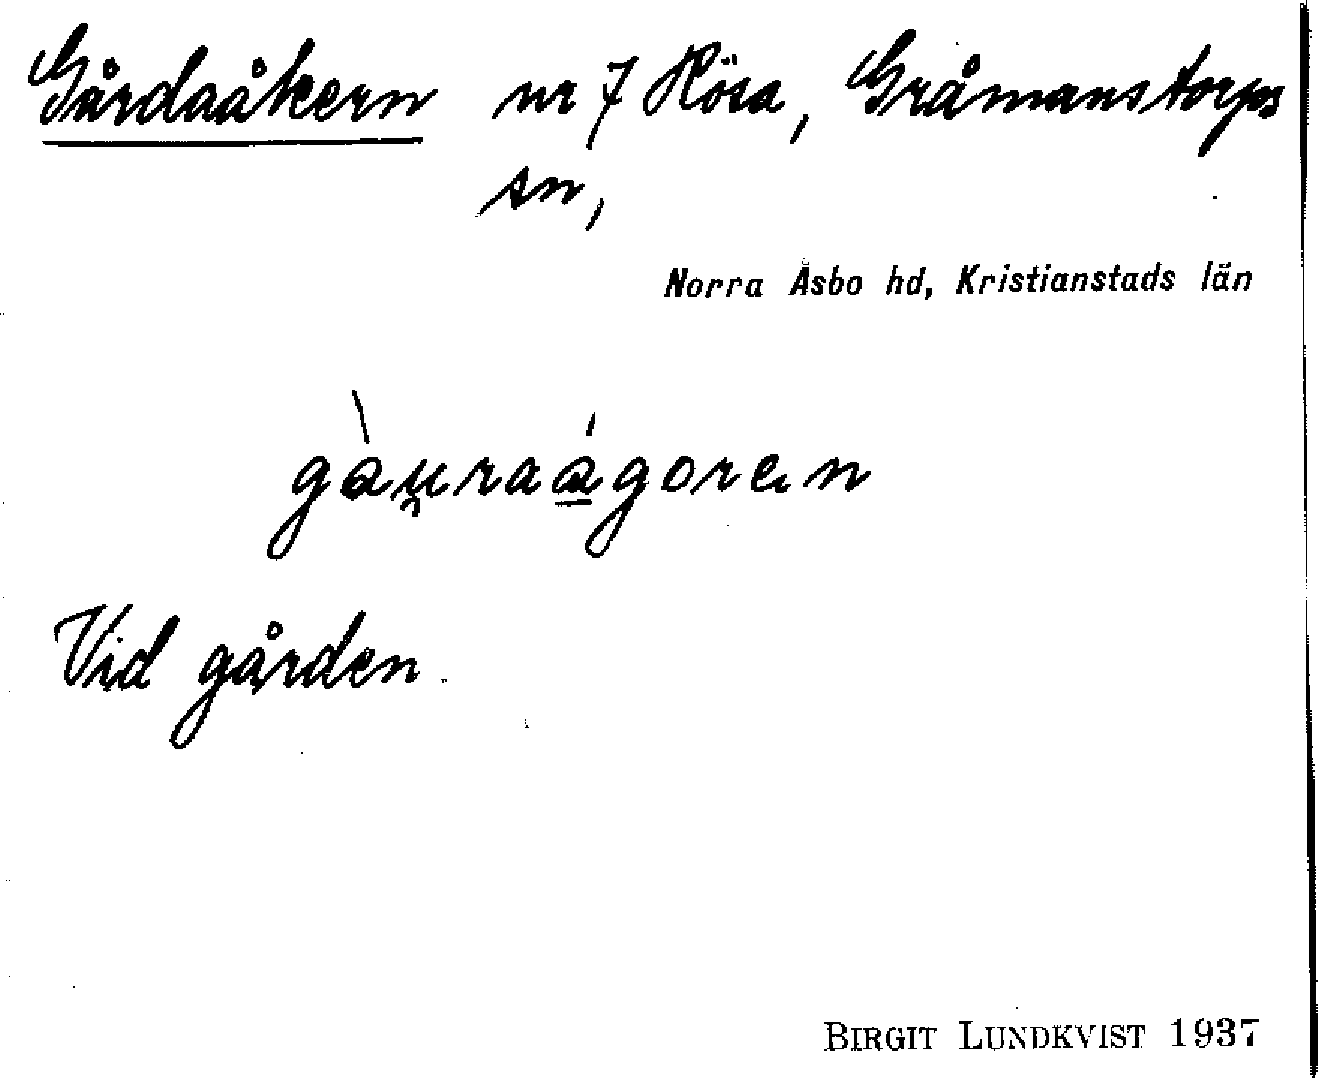 Gårdaåkern nr 7 Hösa, Gråmanstorps
sn,
Norra Åsbo hd, Kristianstads län
Vid gården.
BIRGIT LUNDKVIST 1937